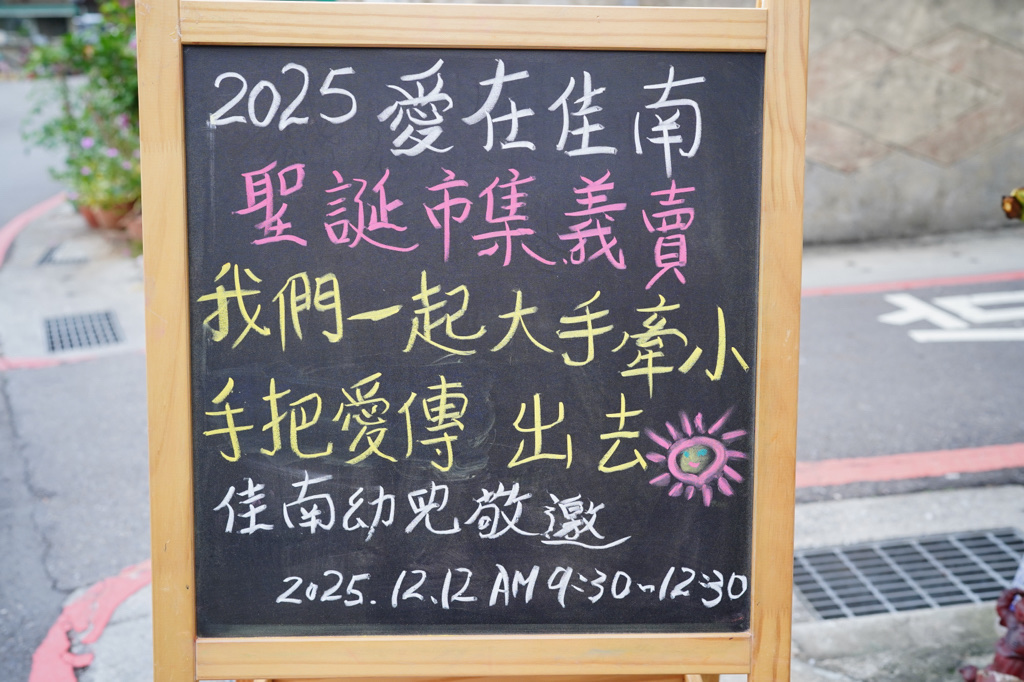 2025 愛在佳南
聖誕市集義賣
我們一起大手牽小
手把愛傳 出去
佳南幼兒敬邀
2025.12.12 AM 9:30~12:30